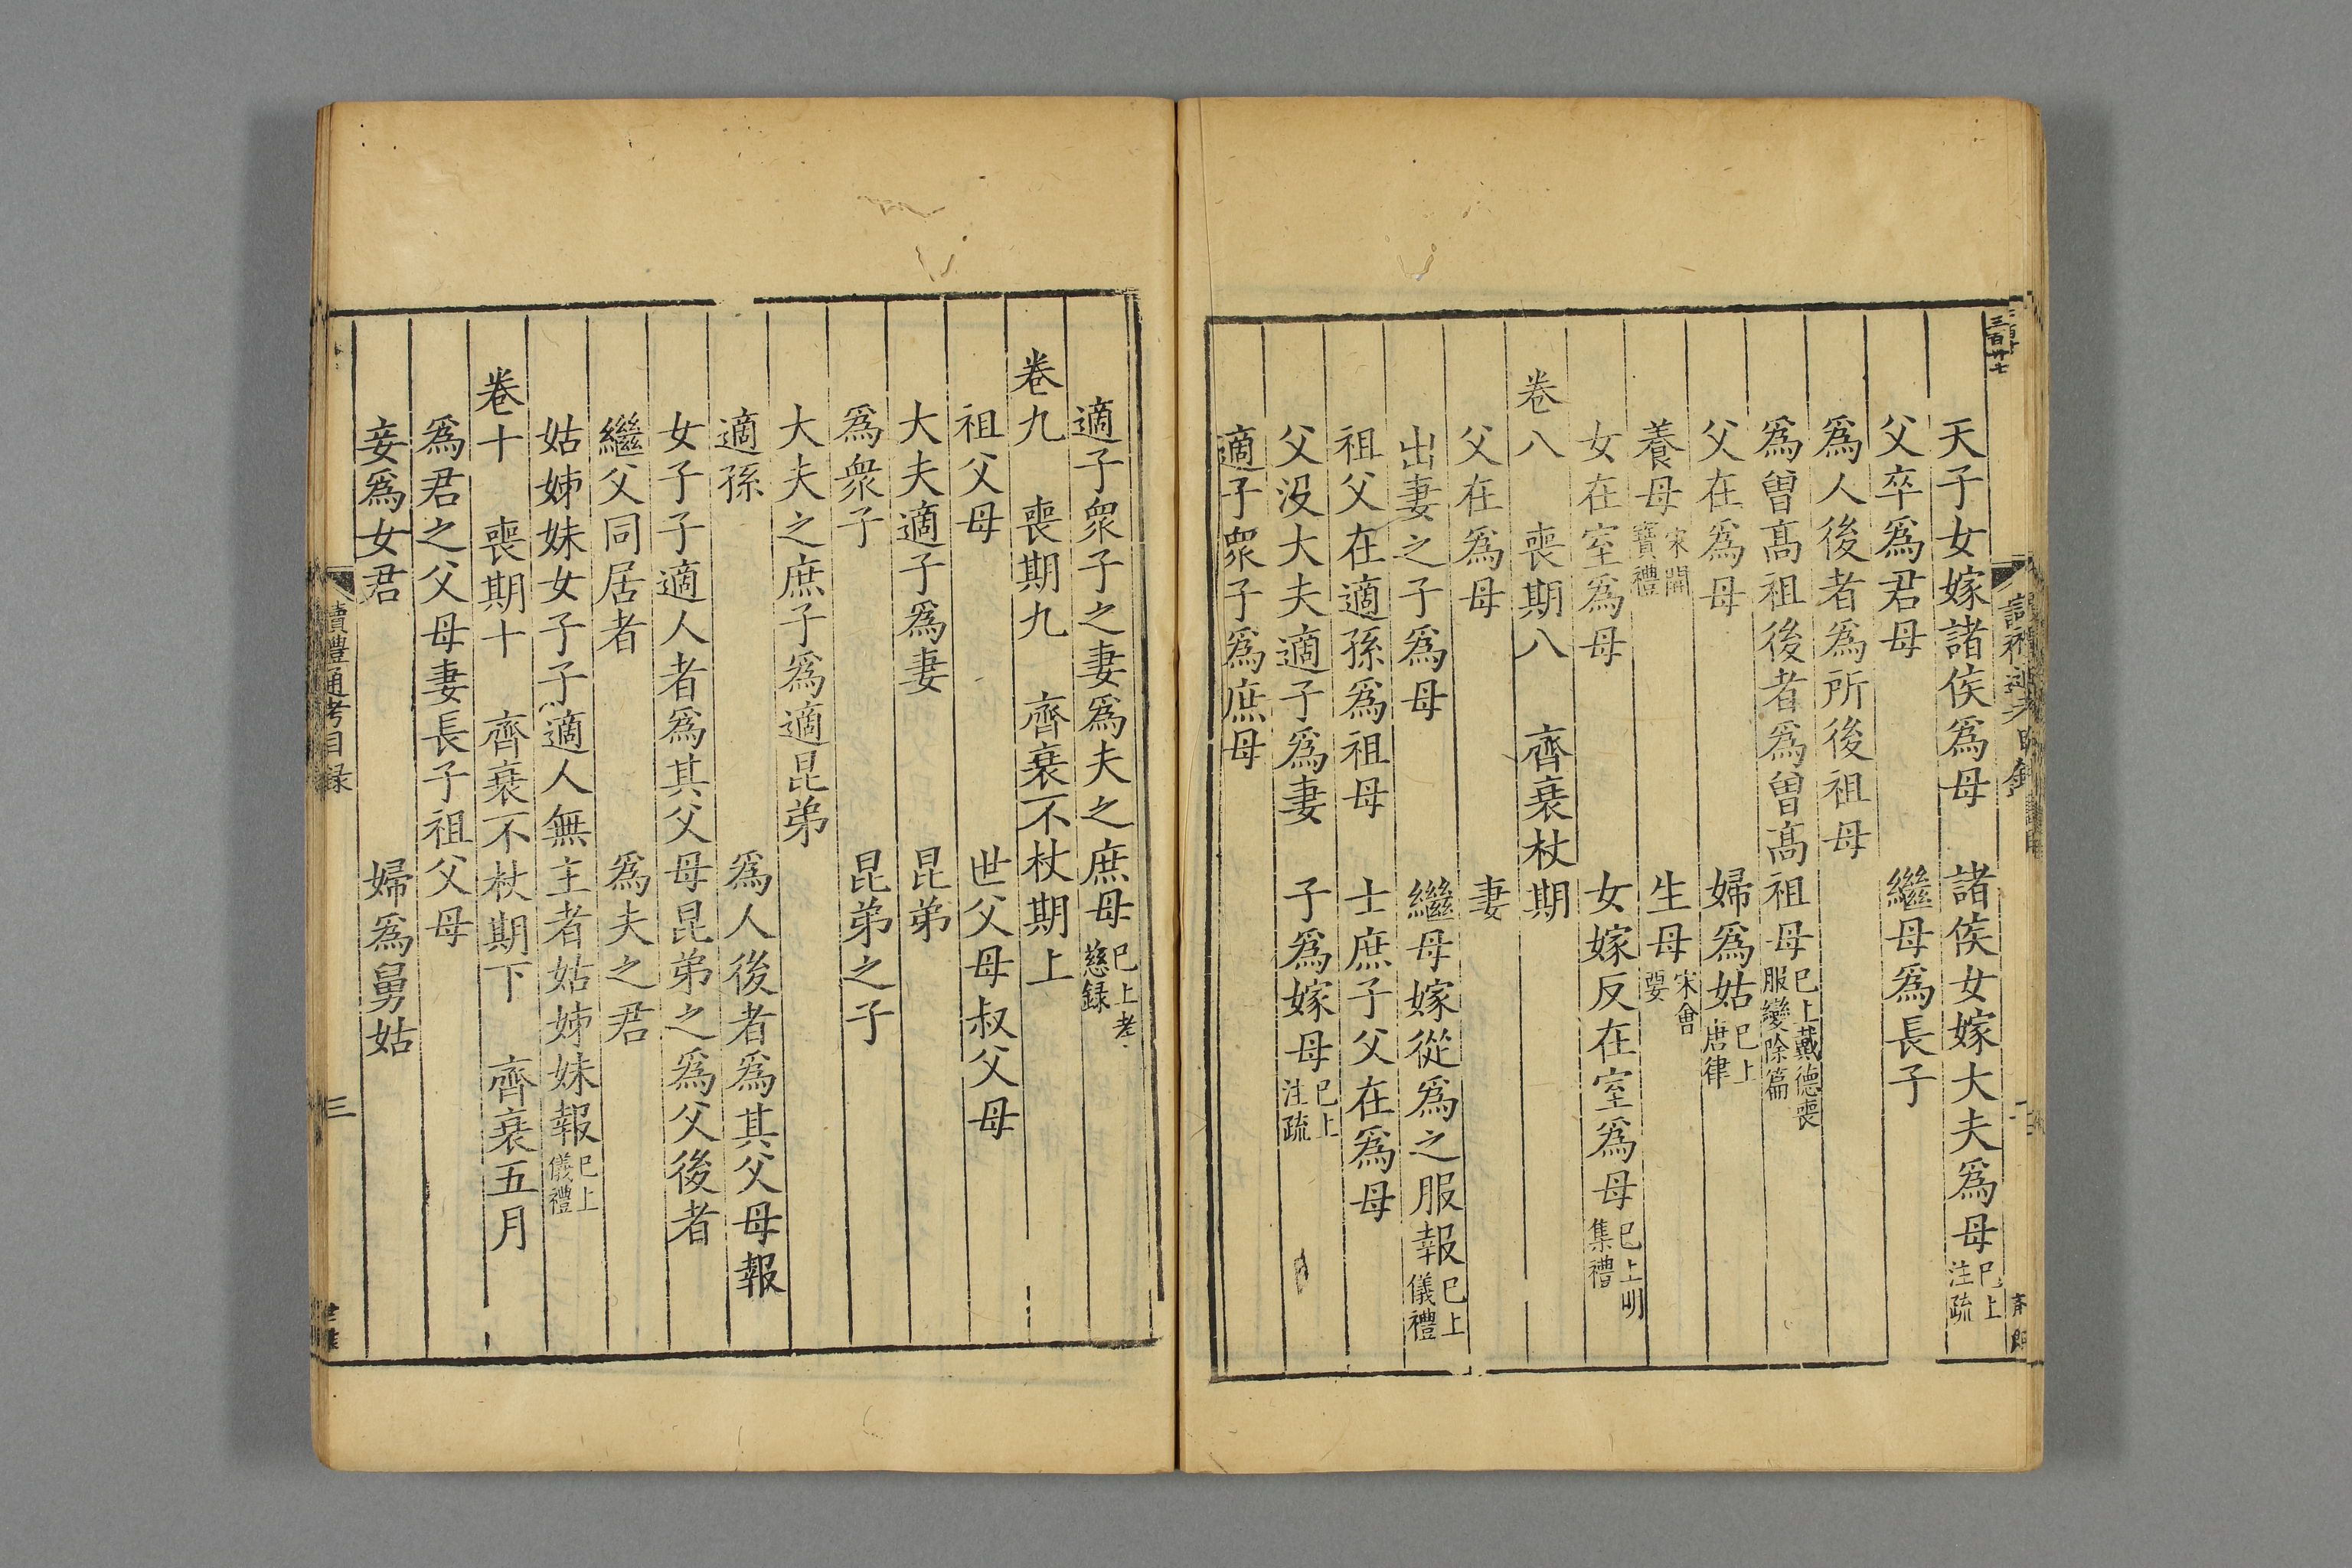 三百廿七
天子女嫁諸侯爲母　諸侯女嫁大夫爲母巳上注疏
父卒爲君母　繼母爲長子
爲人後者爲所後祖母
爲曾髙祖後者爲曾髙祖母巳上戴德喪服變除篇
父在爲母　婦爲姑巳上唐律
養母宋開寶禮　生母宋會要
女在室爲母　女嫁反在室爲母巳上明集禮
卷八　喪期八　齊衰杖期
父在爲母　妻
出妻之子爲母　繼母嫁從爲之服報巳上儀禮
祖父在適孫爲祖母　士庶子父在爲母
父没大夫適子爲妻　子爲嫁母巳上注疏
適子衆子爲庶母
適子衆子之妻爲夫之庶母巳上孝慈録
卷九　喪期九　齊衰不杖期上
祖父母　世父母叔父母
大夫適子爲妻　昆弟
爲衆子　昆弟之子
大夫之庶子爲適昆弟
適孫　爲人後者爲其父母報
女子子適人者爲其父母昆弟之爲父後者
繼父同居者　爲夫之君
姑姊妹女子子適人無主者姑姊妹報巳上儀禮
卷十　喪期十　齊衰不杖期下　齊衰五月
爲君之父母妻長子祖父母
妾爲女君　婦爲舅姑
讀禮通考目録
三